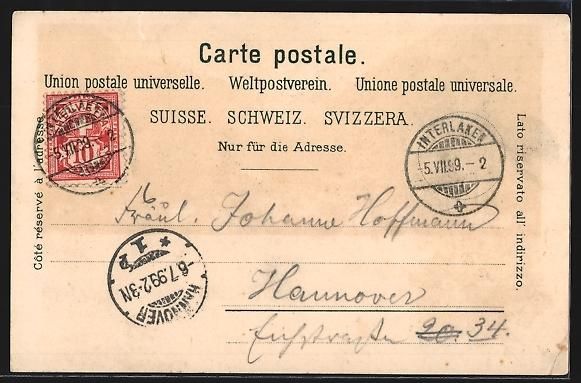 Carte postale.
Union postale universelle. Weltpostverein. Unione postale universale.
SUISSE. SCHWEIZ. SVIZZERA.
Nur für die Adresse.
Côté réservé à l'adresse.
Lato riservato all' indirizzo.
10
INTERLAKEN
5.VII.99.-2
Fräul. Johanne Hoffmann
Hannover
Eichstrasse 20. 34.
* 1 P
-6.7.99.2-3N
HANNOVER